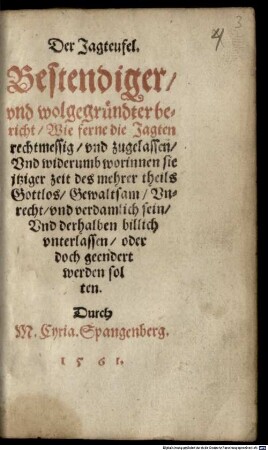 3
4
Der Jagteufel.
Bestendiger/
vnd wolgegründter be-
richt/ Wie ferne die Jagten
rechtmessig/ vnd zugelassen/
Vnd widerumb worinnen sie
jtziger zeit des mehrer theils
Gottlos/ Gewaltsam/ Vn-
recht/ vnd verdamlich sein/
Vnd derhalben billich
vnterlassen/ oder
doch geendert
werden sol
ten.
Durch
M. Cyria. Spangenberg.
1561.